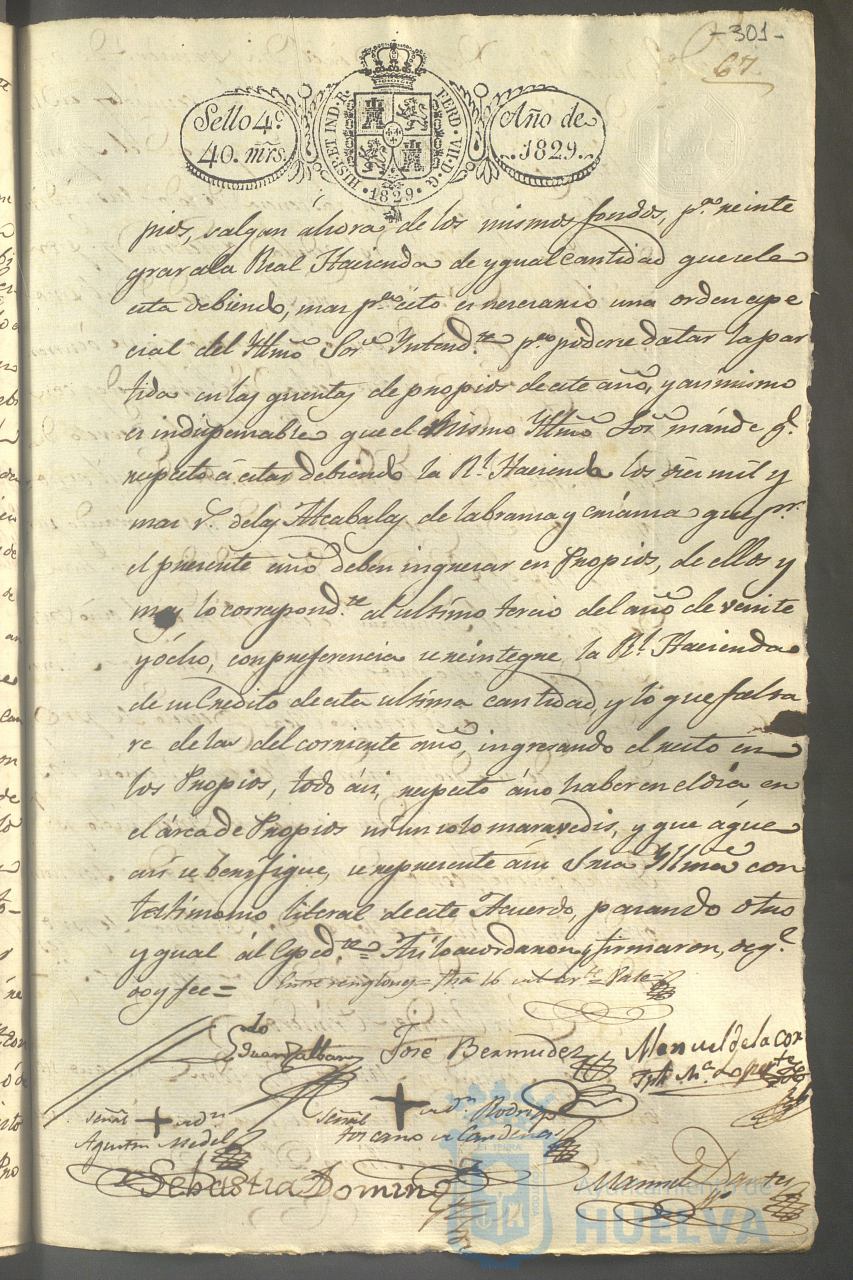 -301-
67.
Sello 4º
40. mrs.
HISP. ET IND. R. FERD. VII. D. G.
1829
Año de
1829.
pios, valgan áhora de los mismos fondos, pª. reinte
grar a la Real Hacienda de ygual cantidad que se le
esta debiendo, mas pª. esto es nesesario una orden espe
cial del Yltmo Sor. Yntendte. pª. poderse datar la par
tida en las quentas de propios de este año, y asi mismo
es indispensable que el mismo Yltmo Sor. mánde q.
respecto á estar debiendo la Rl. Hacienda los seis mil y
mas rs. de las Alcabalas de labranza y crianza que pr.
el presente año deben ingresar en Propios, de ellos y
mas lo correspondte. al ultimo tercio del año de veinte
y ócho, con preferencia se reintegre la Rl. Hacienda
de su Credito de esta ultima cantidad, y lo que falta
re de las del corriente año, ingresando el resto en
los Propios, todo ási, respecto áno haber en el dia en
el árca de Propios ni un solo maravedis, y que áque
asi se berifique, se represente ási Sria Yllma con
testimonio literal de este Acuerdo, pasando otro
y ygual ál Expedte. = Asi lo acordaron y firmaron, de q.
doy fee = Entre renglones =
Jose Bermudez
Manuel de la Cor
te
señal + de
Agustin Medel
señal + de Rodrigo
Toscano de Cardenas
Sebastian Domin
Manuel
Ayuntamiento de
HUELVA